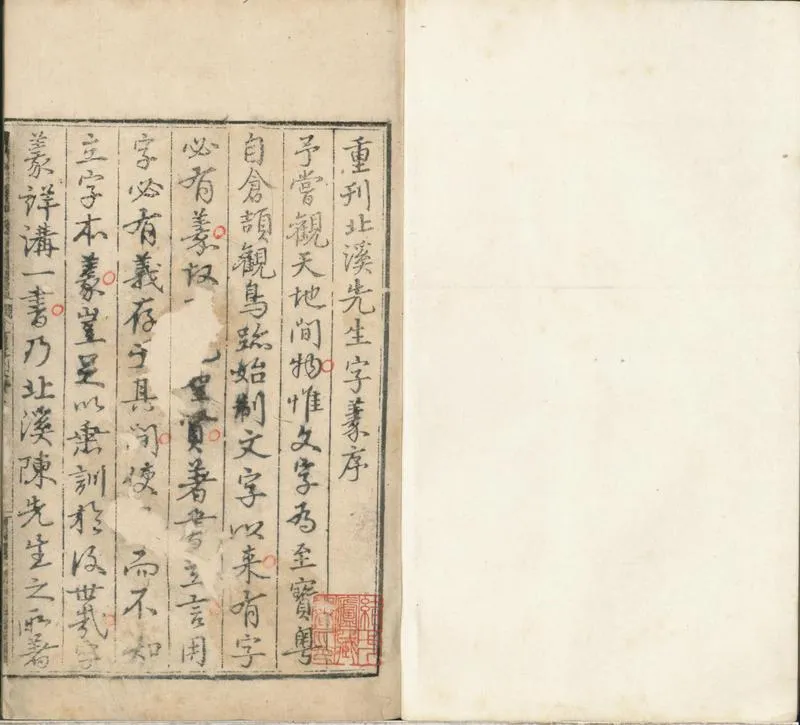 重刊北溪先生字義序
予嘗觀天地間物惟文字為至寶粵
自倉頡觀鳥跡始制文字以來有字
必有義故聖賢著書立言用
字必有義存于其間使而不知
立字本義豈足以垂訓於後世哉字
義詳講一書乃北溪陳先生之所著